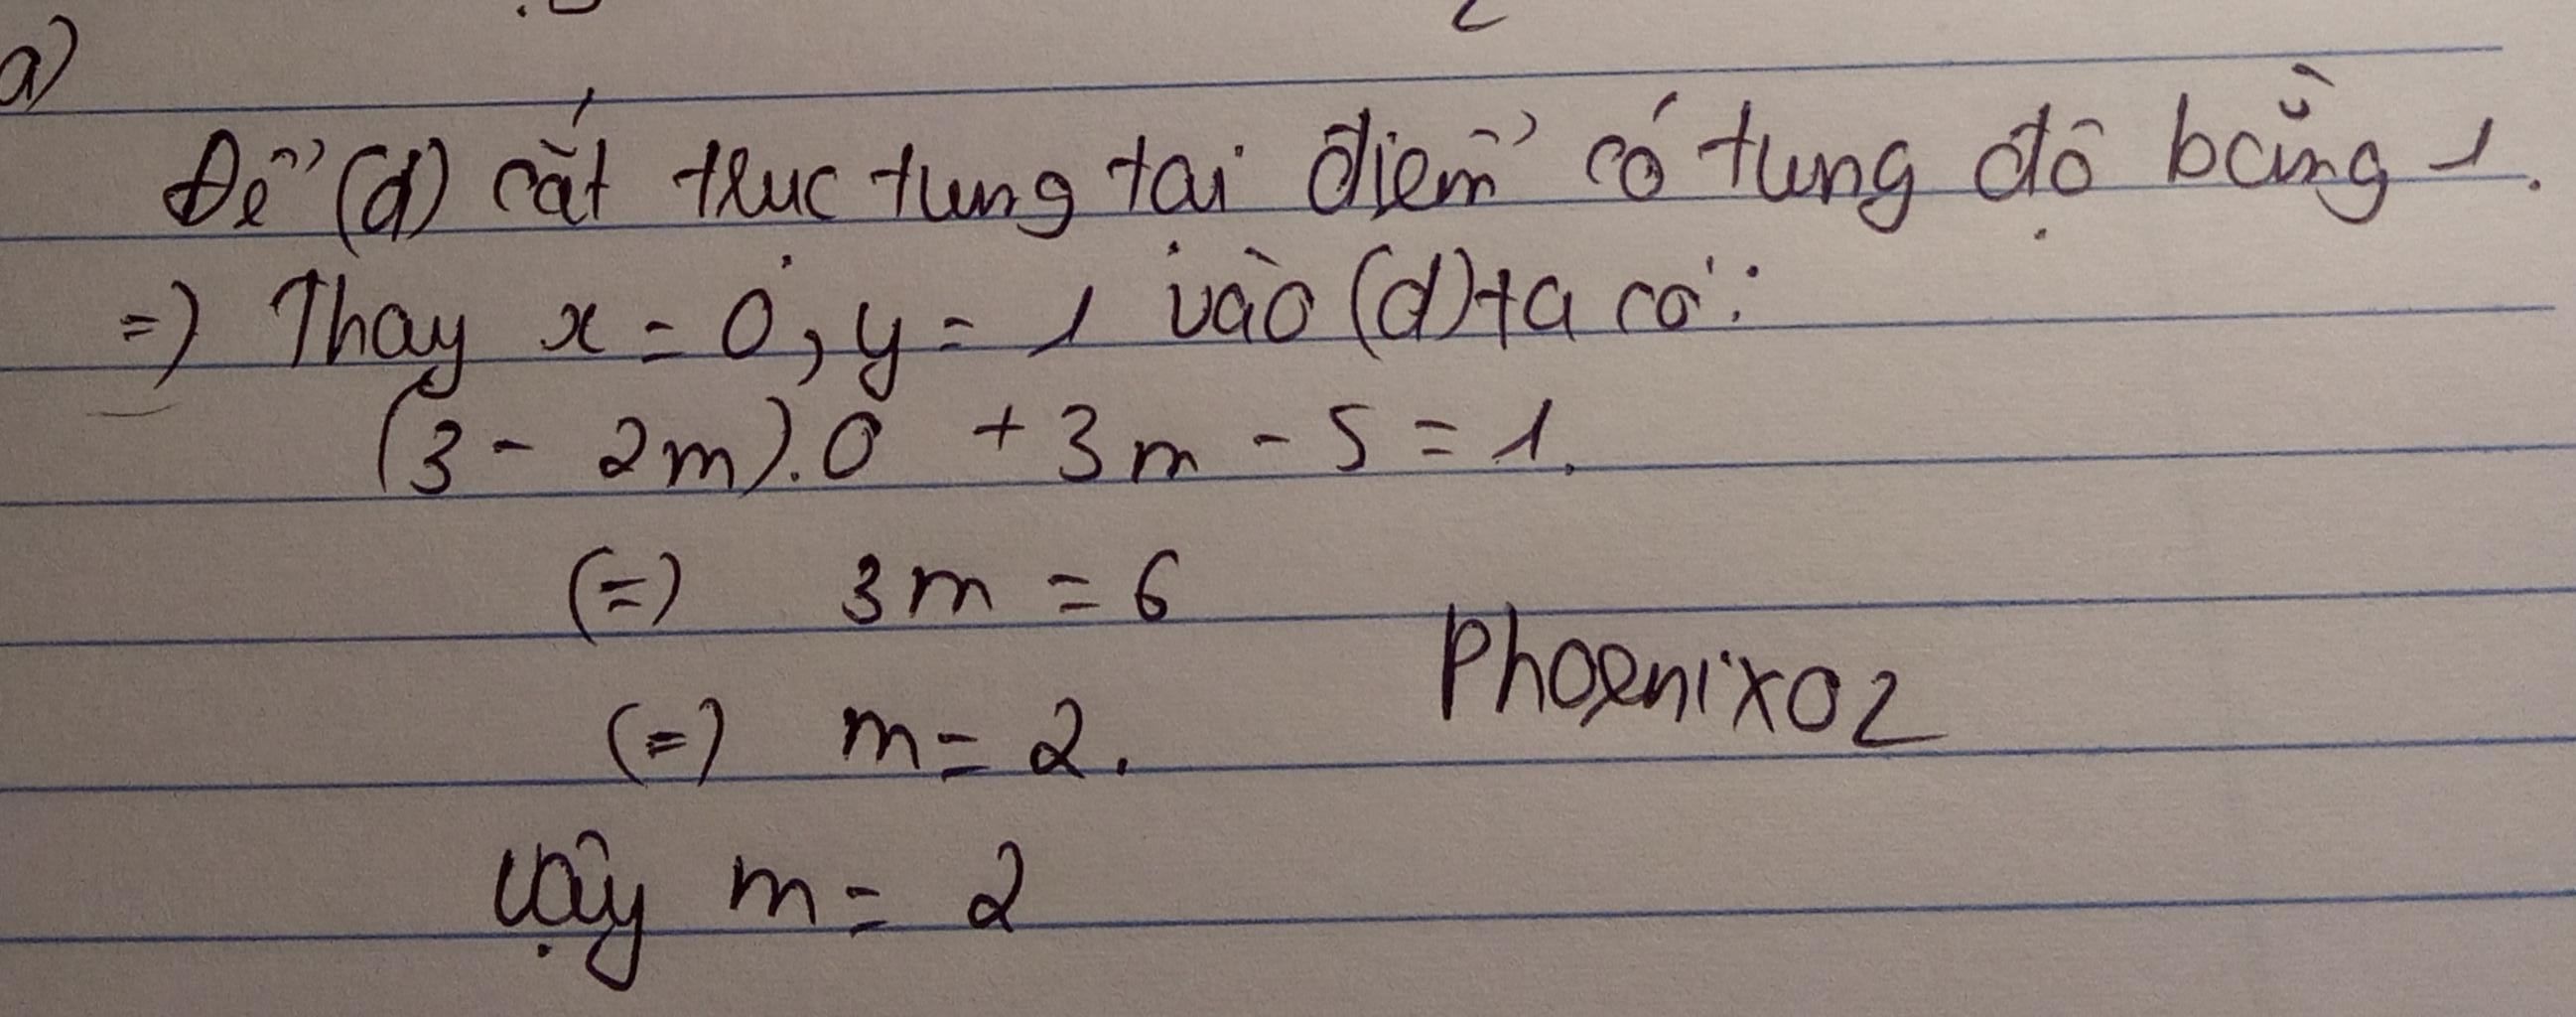 a)
Để (d) cắt trục tung tại điểm có tung độ bằng 1.
=) Thay x = 0, y = 1 vào (d) ta có:
(3 - 2m).0 + 3m - 5 = 1.
(=) 3m = 6
(=) m = 2.
Phoenix02
Vậy m = 2